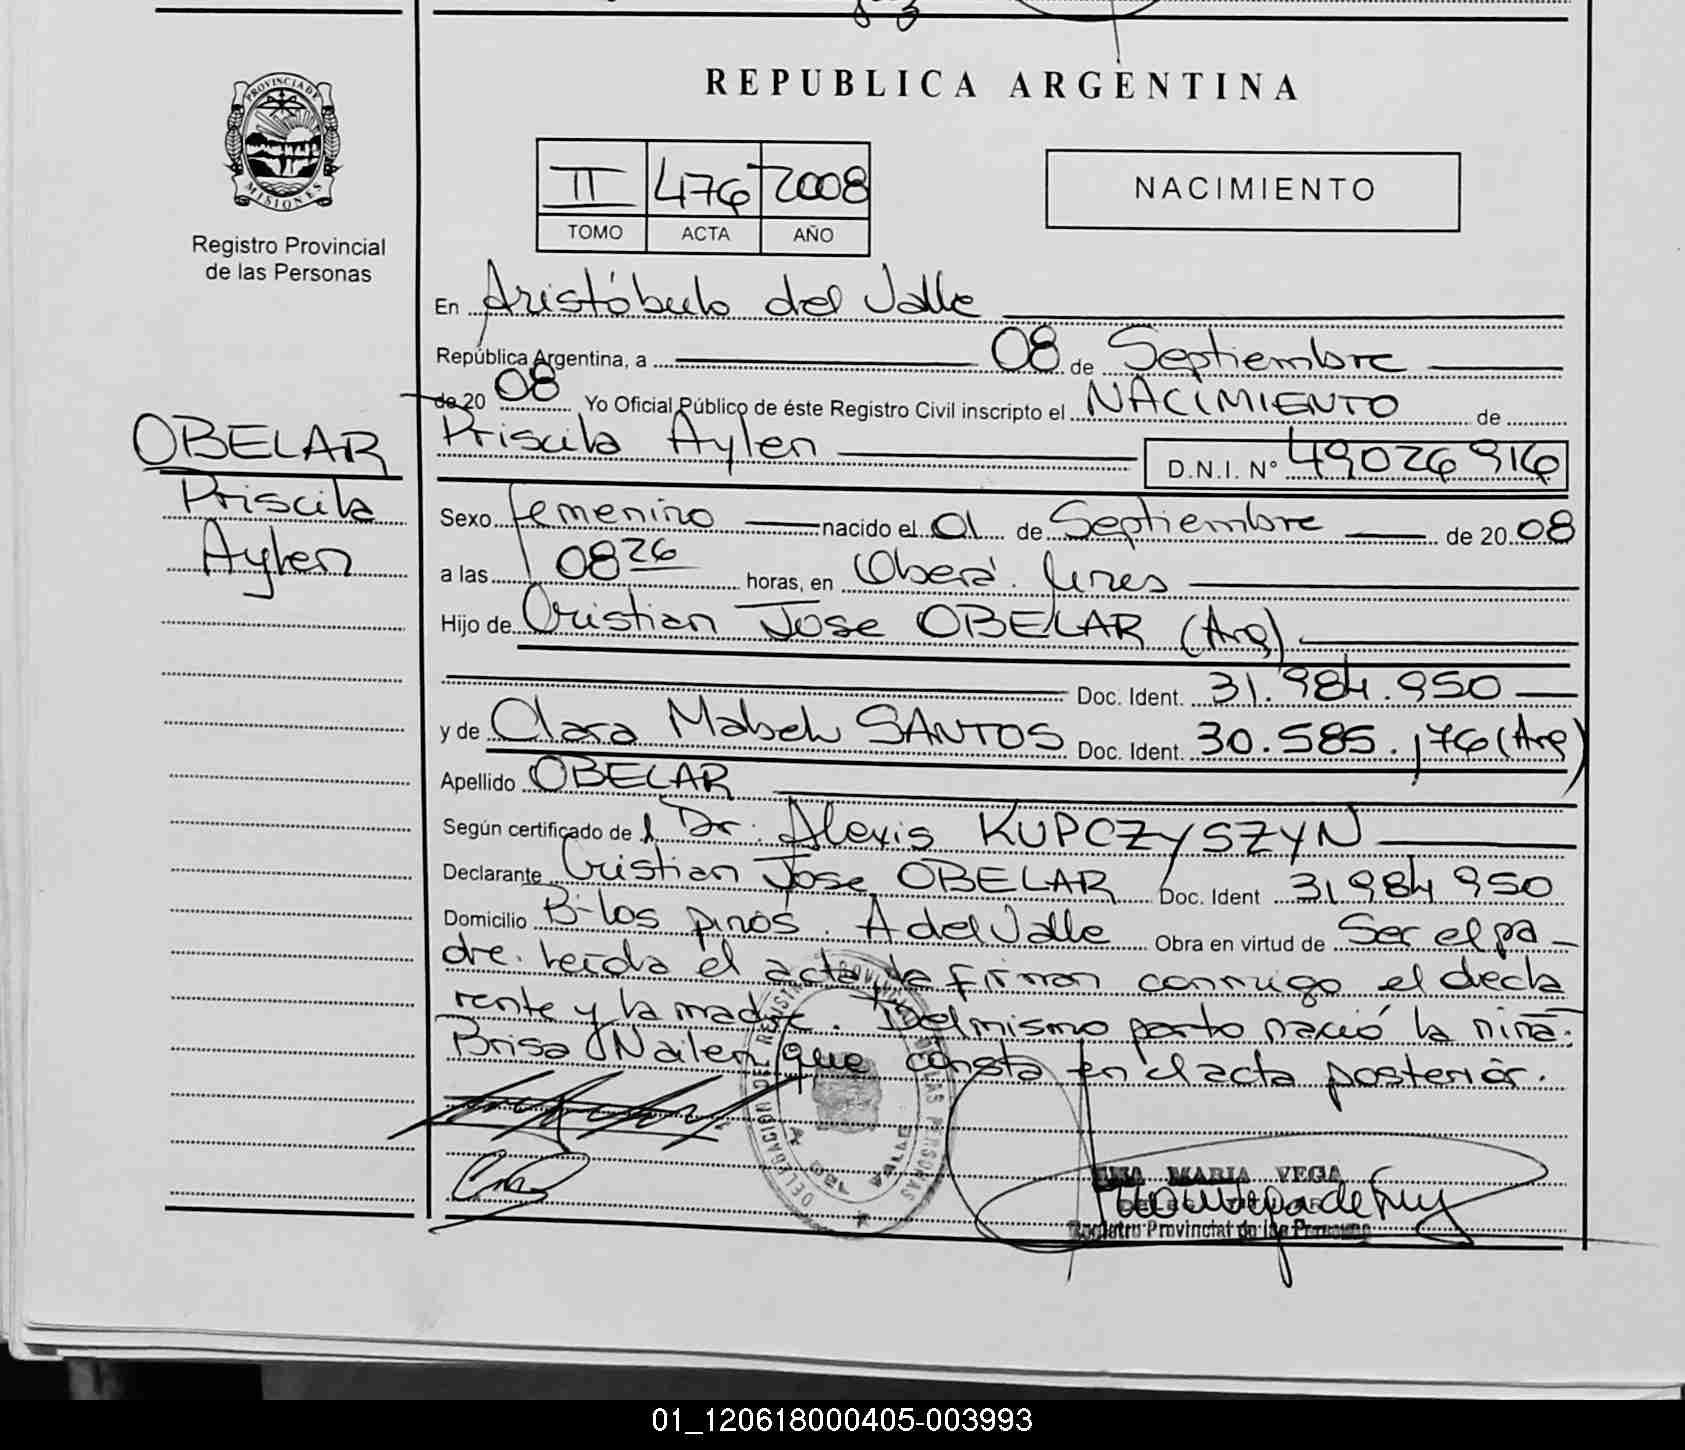 REPUBLICA ARGENTINA
PROVINCIA DE
MISIONES
Registro Provincial
de las Personas
II 476 2008
TOMO ACTA AÑO
NACIMIENTO
En Aristóbulo del Valle
República Argentina, a 08 de Septiembre
de 20 08 Yo Oficial Público de éste Registro Civil inscripto el NACIMIENTO de
Priscila Aylen D.N.I. N° 49026916
OBELAR
Priscila
Aylen
Sexo femenino nacido el 01 de Septiembre de 20 08
a las 08 26 horas, en Oberá. Mnes
Hijo de Cristian Jose OBELAR (Arg)
Doc. Ident. 31.984.950
y de Clara Mabel SANTOS Doc. Ident. 30.585.176 (Arg)
Apellido OBELAR
Según certificado del Dr. Alexis KUPCZYSZYN
Declarante Cristian Jose OBELAR Doc. Ident 31984950
Domicilio B- los pinos. A del Valle Obra en virtud de Ser el pa-
dre. Leida el acta la firman conmigo el decla
rente y la madre. Del mismo parto nació la niña:
Brisa Nailen que consta en el acta posterior.
MARIA VEGA
Registro Provincial de las Personas
01_120618000405-003993